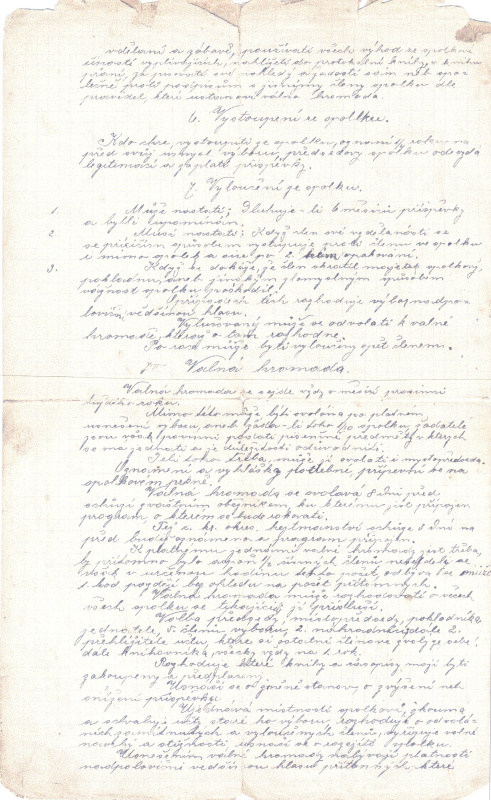 vzdělání a zábavě, používati všech výhod ze spolkové
činnosti vyplývajících, nahlížeti do protokolní knihy, v knihu
přání,
pravidel, které ustanoví valná hromada
6. Vystoupení ze spolku.
Kdo chce, vystoupiti ze spolku, oznámí
před svůj úmysl výboru, předsedovi spolku odevzdá
legitimaci a zaplatí příspěvky.
7. Vyloučení ze spolku.
1. Může nastati: Dluhuje-li 6 měsíců příspěvky
a byl-li upomínán.
2. Musí nastati: Když člen své vzdělanosti se
se příčícím způsobem vystupuje proti členu ve spolku
i mimo spolek a sice po 2 opakování.
3. Když se dokáže, že člen zkrátil majetek spolkový,
pokladnu, aneb jinákým zlomyslným způsobem
vážnost spolku poškodil.
případech těch rozhoduje výbor nadpo-
loviční většinou hlasů.
Vyloučený může se odvolati k valné
hromadě, která o tom rozhodne.
Po roce může býti vyloučený opět členem.
Valná hromada.
Valná hromada se sejde vždy v měsíci prosinci
každého roku.
Mimo této může býti svolána po platném
usnesení výboru, aneb žádá-li toho 1/10 spolku, žadatelé
jsou však povinni poslati písemně předmět o kterých
se má jednati a je důležitosti odůvodniti.
Je-li toho třeba, může ji svolati i místopředseda.
Oznámení a vyhlášky potřebné připevní se na
spolkovém prkně.
Valná hromada se svolává 8 dní před
schůzí zvláštním obsejníkem, ku kterému jest připojen
program o kterém se bude rokovati.
Též c. k. okres. hejtmanství schůze 8 dní na
před budiž oznámena a program připojen.
K platnému jednání valné hromady jest třeba,
by přítomno bylo aspoň činných členů nesejde-li se
v určenou hodinu tento počet, odbývá se může
i hod později bez ohledu na počet přítomných.
Valná hromada může rozhodovati o věcech
všech spolku se týkajících, jí přísluší.
Volba předsedy, místopředsedy, pokladníka,
jednatele, 5 členů výboru, 2 náhradníků dále 2
přehlížitele účtů, které si ostatní členové zvolí ze sebe,
dále knihovníka, všecky vždy na 1. rok.
Rozhoduje které knihy a časopisy mají býti
zakoupeny a předplaceny.
Usnáší se o změně stanov, o zvýšení neb
snížení příspěvků.
Ujednává místnosti spolkové, zkoumá
a schvaluje účty staré ho výboru, rozhoduje o odvolá-
ních zamítnutých a vyloučených členů, vyřizuje volné
návrhy a stížnosti, usnáší se o rozejití spolku.
Usnesením valné hromady nabývají platnosti
nadpoloviční většinou hlasů přítomných, které